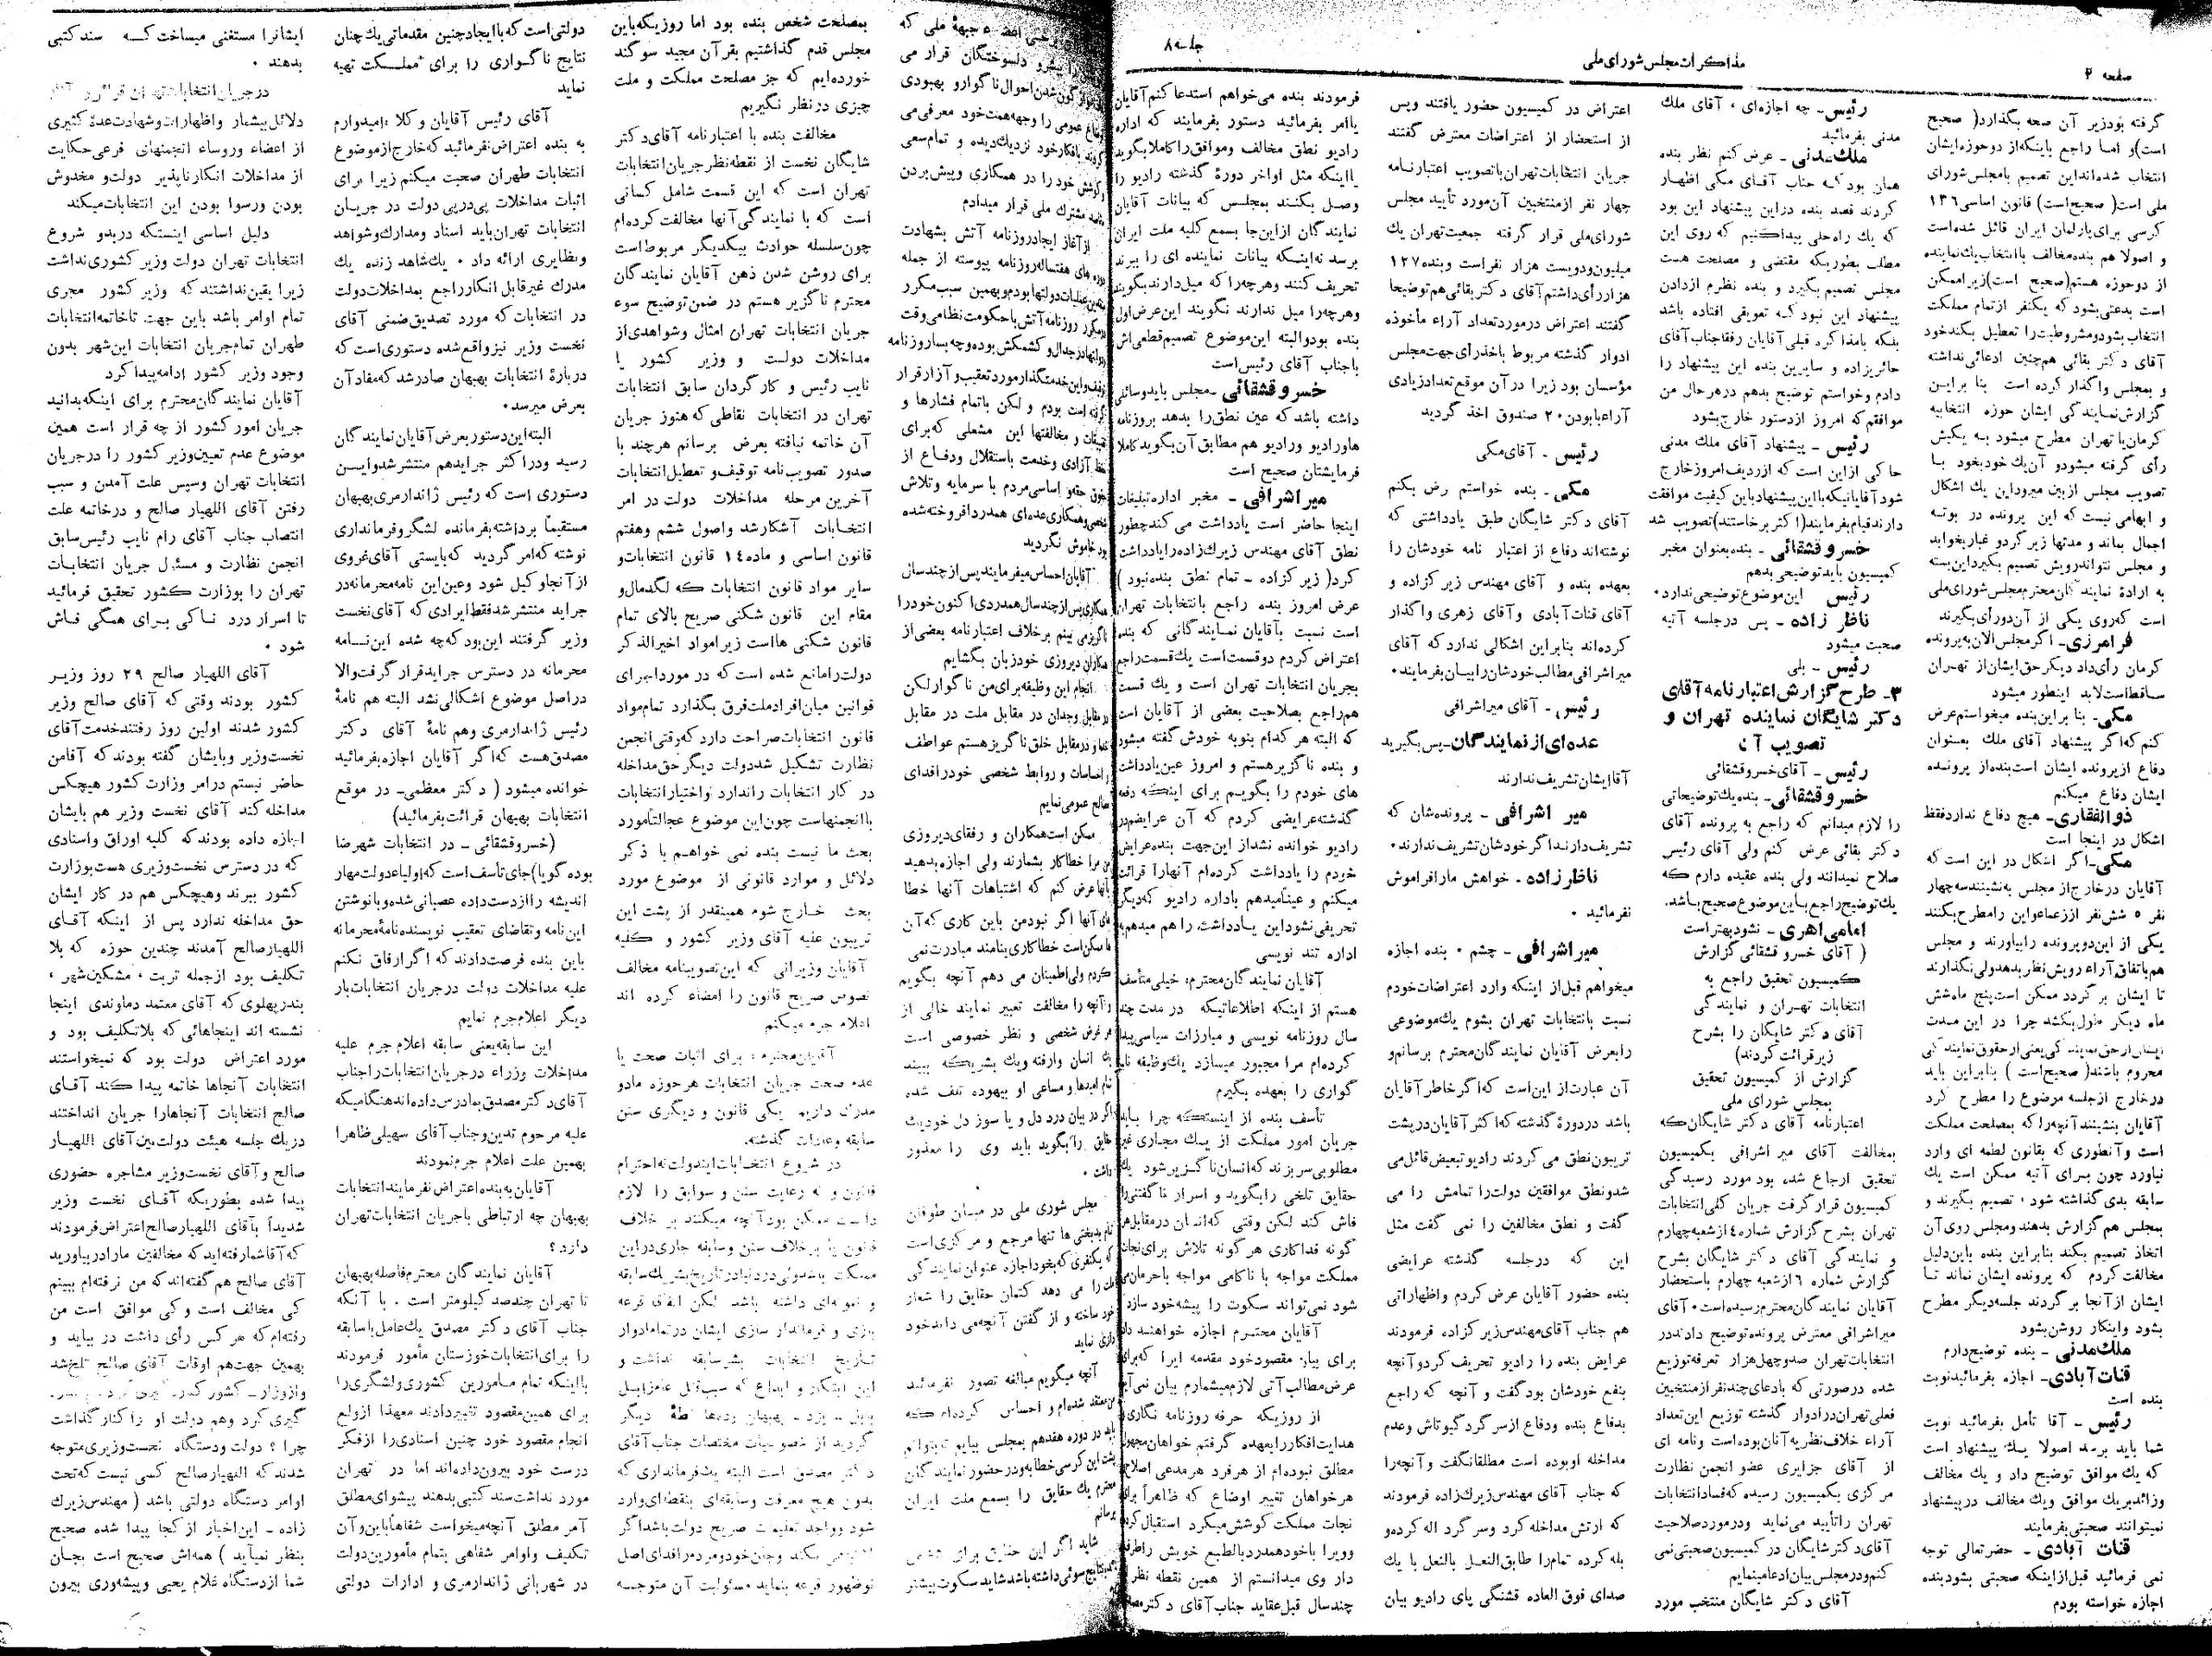 صفحه ۲
مذاکرات مجلس شورای ملی
جلسه ۸
گرفته بود زیر آن صحه بگذارد ( صحیح
است) و اما راجع باینکه از دو حوزه ایشان
انتخاب شده‌اند این تصمیم با مجلس شورای
ملی است ( صحیح است ) قانون اساسی ۱۳۶
کرسی برای پارلمان ایران قائل شده است
و اصولا هم بنده مخالف با انتخاب یک نماینده
از دو حوزه هستم (صحیح است) زیرا ممکن
است بدعتی بشود که یکنفر از تمام مملکت
انتخاب بشود و مشروطیت را تعطیل بکند خود
آقای دکتر بقائی هم چنین ادعائی نداشته
و بمجلس واگذار کرده است بنا بر این
گزارش نمایندگی ایشان حوزه انتخابیه
کرمان یا تهران مطرح میشود به یکیش
رأی گرفته میشود و آن یک خود بخود با
تصویب مجلس از بین میرود این یک اشکال
و ابهامی نیست که این پرونده در بوته
اجمال بماند و مدتها زیر گرد و غبار بخوابد
و مجلس نتواند رویش تصمیم بگیرد این بسته
به اراده نمایندگان محترم مجلس شورای ملی
است که روی یکی از آن دو رأی بگیرند
فرامرزی- اگر مجلس الان به پرونده
کرمان رأی داد دیگر حق ایشان از تهران
ساقط است لابد اینطور میشود
مکی- بنا بر این بنده میخواستم عرض
کنم که اگر پیشنهاد آقای ملک بعنوان
دفاع از پرونده ایشان است بنده از پرونده
ایشان دفاع میکنم
ذوالفقاری- هیچ دفاع ندارد فقط
اشکال در اینجا است
مکی- اگر اشکال در این است که
آقایان در خارج از مجلس به نشینند سه چهار
نفر ۵ شش نفر از زعما و این را مطرح بکنند
یکی از این دو پرونده را بیاورند و مجلس
هم باتفاق آراء رویش نظر بدهد ولی نگذارند
تا ایشان برگردد ممکن است پنج ماه شش
ماه دیگر طول بکشد چرا در این مدت
محروم باشند ( صحیح است ) بنابراین باید
در خارج از جلسه موضوع را مطرح کرد
آقایان بنشینند آنچه را که بمصلحت مملکت
است و آنطوری که بقانون لطمه ای وارد
نیاورد چون برای آتیه ممکن است یک
سابقه بدی گذاشته شود ، تصمیم بگیرند و
بمجلس هم گزارش بدهند و مجلس روی آن
اتخاذ تصمیم بکند بنابراین بنده باین دلیل
مخالفت کردم که پرونده ایشان نماند تا
ایشان از آنجا برگردند جلسه دیگر مطرح
بشود و اینکار روشن بشود
ملک مدنی - بنده توضیح دارم
قنات آبادی- اجازه بفرمائید نوبت
بنده است
رئیس - آقا تأمل بفرمائید نوبت
شما باید برسد اصولا یک پیشنهاد است
که یک موافق توضیح داد و یک مخالف
و زائد بر یک موافق و یک مخالف در پیشنهاد
نمیتوانند صحبتی بفرمایند
قنات آبادی - حضرتعالی توجه
نمی فرمائید قبل از اینکه صحبتی بشود بنده
اجازه خواسته بودم
رئیس- چه اجازه‌ای ، آقای ملک
مدنی بفرمائید
ملک مدنی - عرض کنم نظر بنده
همان بود که جناب آقای مکی اظهار
کردند قصد بنده در این پیشنهاد این بود
که یک راه حلی پیدا کنیم که روی این
مطلب بطوریکه مقتضی و مصلحت هست
مجلس تصمیم بگیرد و بنده نظرم از دادن
پیشنهاد این نبود که تعویقی افتاده باشد
بلکه با مذاکره قبلی آقایان رفقا جناب آقای
حائریزاده و سایرین بنده این پیشنهاد را
دادم و خواستم توضیح بدهم در هر حال من
موافقم که امروز از دستور خارج بشود
رئیس - پیشنهاد آقای ملک مدنی
حاکی از این است که از ردیف امروز خارج
شود آقایانیکه با این پیشنهاد باین کیفیت موافقت
دارند قیام بفرمایند (اکثر برخاستند) تصویب شد
خسرو قشقائی - بنده بعنوان مخبر
کمیسیون باید توضیحی بدهم
رئیس این موضوع توضیحی ندارد.
ناظر زاده - پس در جلسه آتیه
صحبت میشود
رئیس - بلی
۳- طرح گزارش اعتبارنامه آقای
دکتر شایگان نماینده تهران و
تصویب آن
رئیس - آقای خسرو قشقائی
خسرو قشقائی- بنده یک توضیحاتی
را لازم میدانم که راجع به پرونده آقای
دکتر بقائی عرض کنم ولی آقای رئیس
صلاح نمیدانند ولی بنده عقیده دارم که
یک توضیح راجع باین موضوع صحیح باشد.
امامی اهری - نشود بهتر است
( آقای خسرو قشقائی گزارش
کمیسیون تحقیق راجع به
انتخابات تهران و نمایندگی
آقای دکتر شایگان را بشرح
زیر قرائت کردند)
گزارش از کمیسیون تحقیق
بمجلس شورای ملی
اعتبارنامه آقای دکتر شایگان که
بمخالفت آقای میر اشرافی بکمیسیون
تحقیق ارجاع شده بود مورد رسیدگی
کمیسیون قرار گرفت جریان کلی انتخابات
تهران بشرح گزارش شماره ۴ از شعبه چهارم
و نمایندگی آقای دکتر شایگان بشرح
گزارش شماره ۶ از شعبه چهارم باستحضار
آقایان نمایندگان محترم رسیده است . آقای
میراشرافی معترض پرونده توضیح دادند در
انتخابات تهران صد و چهل هزار تعرفه توزیع
شده در صورتی که بادعای چند نفر از منتخبین
فعلی تهران در ادوار گذشته توزیع این تعداد
آراء خلاف نظریه آنان بوده است و نامه ای
از آقای جزایری عضو انجمن نظارت
مرکزی بکمیسیون رسیده که فساد انتخابات
تهران را تأیید می‌نماید و در مورد صلاحیت
آقای دکتر شایگان در کمیسیون صحبتی نمی
کنم و در مجلس بیان ادعا مینمایم
آقای دکتر شایگان منتخب مورد
اعتراض در کمیسیون حضور یافتند و پس
از استحضار از اعتراضات معترض گفتند
جریان انتخابات تهران با تصویب اعتبارنامه
چهار نفر از منتخبین آن مورد تأیید مجلس
شورای ملی قرار گرفته جمعیت تهران یک
میلیون و دویست هزار نفر است و بنده ۱۲۷
هزار رأی داشتم آقای دکتر بقائی هم توضیحا
گفتند اعتراض در مورد تعداد آراء مأخوذه
ادوار گذشته مربوط باخذ رأی جهت مجلس
مؤسسان بود زیرا در آن موقع تعداد زیادی
آراء با بودن ۲۰ صندوق اخذ گردید
رئیس - آقای مکی
مکی- بنده خواستم عرض بکنم
آقای دکتر شایگان طبق یادداشتی که
نوشته‌اند دفاع از اعتبار نامه خودشان را
بعهده بنده و آقای مهندس زیرک زاده و
آقای قنات آبادی و آقای زهری واگذار
کرده‌اند بنابراین اشکالی ندارد که آقای
میراشرافی مطالب خودشان را بیان بفرمایند.
رئیس - آقای میراشرافی
عده‌ای از نمایندگان- پس بگیرید
آقا ایشان تشریف ندارند
میر اشرافی - پرونده‌شان که
تشریف دارند اگر خودشان تشریف ندارند.
ناظر زاده - خواهش ما را فراموش
نفرمائید .
میر اشرافی - چشم . بنده اجازه
میخواهم قبل از اینکه وارد اعتراضات خودم
نسبت بانتخابات تهران بشوم یک موضوعی
را بعرض آقایان نمایندگان محترم برسانم و
آن عبارت از این است که اگر خاطر آقایان
باشد در دوره گذشته که اکثر آقایان در پشت
تریبون نطق می کردند رادیو تبعیض قائل می
شد و نطق موافقین دولت را تمامش را می
گفت و نطق مخالفین را نمی گفت مثل
این که در جلسه گذشته عرایضی
بنده حضور آقایان عرض کردم و اظهاراتی
هم جناب آقای مهندس زیرک زاده فرمودند
عرایض بنده را رادیو تحریف کرد و آنچه
بنفع خودشان بود گفت و آنچه که راجع
بدفاع بنده و دفاع از سرگرد گیوتاش و عدم
مداخله او بوده است مطلقا نگفت و آنچه را
که جناب آقای مهندس زیرک زاده فرمودند
که ارتش مداخله کرد و سرگرد اله کرده و
بله کرده تمام را طابق النعل بالنعل با یک
صدای فوق العاده قشنگی پای رادیو بیان
فرمودند بنده می خواهم استدعا کنم آقایان
یا امر بفرمائید دستور بفرمایند که اداره
رادیو نطق مخالف و موافق را کاملا بگوید
یا اینکه مثل اواخر دورهٔ گذشته رادیو را
وصل بکنند بمجلس که بیانات آقایان
نمایندگان از این جا بسمع کلیه ملت ایران
برسد نه اینکه بیانات نماینده ای را ببرند
تحریف کنند و هر چه را که میل دارند بگویند
و هرچه را میل ندارند نگویند این عرض اول
بنده بود و البته این موضوع تصمیم قطعی اش
با جناب آقای رئیس است
خسرو قشقائی -مجلس باید وسائلی
داشته باشد که عین نطق را بدهد بروزنامه
ها و رادیو و رادیو هم مطابق آن بگوید کاملا
فرمایشتان صحیح است
میر اشرافی - مخبر اداره تبلیغات
اینجا حاضر است یادداشت می کند چطور
نطق آقای مهندس زیرک زاده را یادداشت
کرد ( زیرکزاده - تمام نطق بنده نبود )
عرض امروز بنده راجع بانتخابات تهران
است نسبت بآقایان نمایندگانی که بنده
اعتراض کردم دو قسمت است یک قسمت راجع
بجریان انتخابات تهران است و یک قسمت
هم راجع بصلاحیت بعضی از آقایان است
که البته هر کدام بنوبه خودش گفته میشود
و بنده ناگزیر هستم و امروز عین یادداشت
های خودم را بگویم برای اینکه دفعه
گذشته عرایضی کردم که آن عرایضم در
رادیو خوانده نشد از این جهت بنده عرایض
خودم را یادداشت کرده‌ام آنها را قرائت
میکنم و عیناً میدهم باداره رادیو که دیگر
تحریفی نشود این یادداشت را هم میدهم به
اداره تند نویسی
آقایان نمایندگان محترم، خیلی متأسف
هستم از اینکه اطلاعاتیکه در مدت چند
سال روزنامه نویسی و مبارزات سیاسی پیدا
کرده‌ام مرا مجبور میسازد یک وظیفه نا
گواری را بعهده بگیرم
تأسف بنده از اینستکه چرا باید
جریان امور مملکت از یک مجاری غیر
مطلوبی سر بزند که انسان ناگزیر شود یک
حقایق تلخی را بگوید و اسرار ناگفتنی را
فاش کند لکن وقتی که انسان در مقابل هر
گونه فداکاری هر گونه تلاش برای نجات
مملکت مواجه با ناکامی مواجه با حرمان می
شود نمی‌تواند سکوت را پیشه خود سازد
آقایان محترم اجازه خواهند داد
برای بیان مقصود خود مقدمه ایرا که برای
عرض مطالب آتی لازم میشمارم بیان نمایم
از روزیکه حرفه روزنامه نگاری و
هدایت افکار را بعهده گرفتم خواهان مجهول
مطلق نبوده‌ام از هر فرد هر مدعی اصلاح
هر خواهان تغییر اوضاع که ظاهراً برای
نجات مملکت کوشش میکرد استقبال کرده
و ویرا با خود همدرد بالطبع خویش را طرف
دار وی میدانستم از همین نقطه نظر
چند سال قبل عقاید جناب آقای دکتر مصدق
جبههٔ ملی که
دلسوختگان قرار می
گون شدن احوال ناگوار و بهبودی
عمومی را وجهه همت خود معرفی می
بافکار خود نزدیک دیده و تمام سعی
خود را در همکاری و پیش بردن
مشترک ملی قرار میدادم
از آغاز ایجاد روزنامه آتش بشهادت
های هفتساله روزنامه پیوسته از جمله
دولتها بودم و بهمین سبب مکرر
روزنامه آتش با حکومت نظامی وقت
جدال و کشمکش بوده و چه بسا روزنامه
و این خدمتگذار مورد تعقیب و آزار قرار
گرفته است بودم و لکن با تمام فشارها و
و مخالفتها این مشعلی که برای
آزادی و خدمت باستقلال و دفاع از
اساسی مردم با سرمایه و تلاش
و همکاری عده‌ای همدرد افروخته شده
بود خاموش نگردید
آقایان احساس میفرمایند پس از چند سال
همکاری پس از چند سال همدردی اکنون خود را
ناگزیر می بینم بر خلاف اعتبارنامه بعضی از
همکاران دیروزی خود زبان بگشایم
انجام این وظیفه برای من ناگوار لکن
در مقابل وجدان در مقابل ملت در مقابل
در مقابل خلق ناگزیر هستم عواطف
و احساسات و روابط شخصی خود را فدای
مصالح عمومی نمایم
ممکن است همکاران و رفقای دیروزی
من مرا خطاکار بشمارند ولی اجازه بدهید
بآنها عرض کنم که اشتباهات آنها خطا
های آنها اگر نبود من باین کاری که آن
را ممکن است خطاکاری بنامند مبادرت نمی
کردم ولی اطمینان می دهم آنچه بگویم
و آنچه را مخالفت تعبیر نمایند خالی از
هر غرض شخصی و نظر خصوصی است
یک انسان وارفته و یک بشریکه ببیند
تمام امیدها و مساعی او بیهوده تلف شده
اگر در بیان درد دل و یا سوز دل خود یک
حقایق را بگوید باید وی را معذور
داشت .
مجلس شوری ملی در میان طوفان
تمام بدبختی ها تنها مرجع و مرکزی است
که یکنفری که بخود اجازه عنوان نمایندگی
ملت را می دهد کتمان حقایق را شعار
خود ساخته و از گفتن آنچه می داند خود
داری نماید
آنچه میگویم مبالغه تصور نفرمائید
من معتقد شده‌ام و احساس کرده‌ام که
باید در دوره هفدهم بمجلس بیایم تا بتوانم
پشت این کرسی خطابه و در حضور نمایندگان
محترم یک حقایق را بسمع ملت ایران
برسانم
شاید اگر این حقایق برای شخص
بنده نتایج سوئی داشته باشد شاید سکوت بیشتر
بمصلحت شخص بنده بود اما روزیکه باین
مجلس قدم گذاشتیم بقرآن مجید سوگند
خورده‌ایم که جز مصلحت مملکت و ملت
چیزی در نظر نگیریم
مخالفت بنده با اعتبارنامه آقای دکتر
شایگان نخست از نقطه نظر جریان انتخابات
تهران است که این قسمت شامل کسانی
است که با نمایندگی آنها مخالفت کرده‌ام
چون سلسله حوادث بیکدیگر مربوط است
برای روشن شدن ذهن آقایان نمایندگان
محترم ناگزیر هستم در ضمن توضیح سوء
جریان انتخابات تهران امثال و شواهدی از
مداخلات دولت و وزیر کشور یا
نایب رئیس و کارگردان سابق انتخابات
تهران در انتخابات نقاطی که هنوز جریان
آن خاتمه نیافته بعرض برسانم هرچند با
صدور تصویب نامه توقیف و تعطیل انتخابات
آخرین مرحله مداخلات دولت در امر
انتخابات آشکار شد و اصول ششم و هفتم
قانون اساسی و ماده ۱۴ قانون انتخابات و
سایر مواد قانون انتخابات که لگدمال و
مقام این قانون شکنی صریح بالای تمام
قانون شکنی ها است زیرا مواد اخیر الذکر
دولت را مانع شده است که در مورد اجرای
قوانین میان افراد ملت فرق بگذارد تمام مواد
قانون انتخابات صراحت دارد که وقتی انجمن
نظارت تشکیل شد دولت دیگر حق مداخله
در کار انتخابات را ندارد و اختیار انتخابات
با انجمنهاست چون این موضوع عجالتاً مورد
بحث ما نیست بنده نمی خواهم با ذکر
دلائل و موارد قانونی از موضوع مورد
بحث خارج شوم همینقدر از پشت این
تریبون علیه آقای وزیر کشور و کلیه
آقایان وزیرانی که این تصویبنامه مخالف
نصوص صریح قانون را امضاء کرده اند
اعلام جرم میکنم
آقایان محترم ، برای اثبات صحت یا
عدم صحت جریان انتخابات هر حوزه ما دو
مدرک داریم یکی قانون و دیگری سنن
سابقه و عادات گذشته.
در شروع انتخابات ایندولت نه احترام
قانون و نه رعایت سنن و سوابق را لازم
دانست ممکن بود آنچه میکنند بر خلاف
قانون یا بر خلاف سنن و سابقه جاری در این
مملکت باشد ولی درد نیا در تاریخ بشر یک سابقه
و نمونه‌ای داشته باشد لکن اتفاق قرعه
بازی و فرماندار سازی ایشان در تمام ادوار
تاریخ انتخابات بشر سابقه نداشت و
گردید از خصوصیات مختصات جناب آقای
دکتر مصدق است البته یک فرمانداری که
بدون هیچ معرفت و سابقه‌ای بنقطه‌ای وارد
شود و واجد تعلیمات صریح دولت باشد اگر
نوظهور قرعه بنماید مسئولیت آن متوجه
دولتی است که با ایجاد چنین مقدماتی یک چنان
نتایج ناگواری را برای مملکت تهیه
نماید
آقای رئیس آقایان وکلا ، امیدوارم
به بنده اعتراض نفرمائید که خارج از موضوع
انتخابات طهران صحبت میکنم زیرا برای
اثبات مداخلات پی در پی دولت در جریان
انتخابات تهران باید اسناد و مدارک و شواهد
و نظایری ارائه داد . یک شاهد زنده یک
مدرک غیر قابل انکار راجع بمداخلات دولت
در انتخابات که مورد تصدیق ضمنی آقای
نخست وزیر نیز واقع شده دستوری است که
دربارهٔ انتخابات بهبهان صادر شد که مفاد آن
بعرض میرسد.
البته این دستور بعرض آقایان نمایندگان
رسید و در اکثر جراید هم منتشر شد و این
دستوری است که رئیس ژاندارمری بهبهان
مستقیماً برداشته بفرمانده لشگر و فرمانداری
نوشته که امر گردید که بایستی آقای غروی
از آنجا وکیل شود و عین این نامه محرمانه در
جراید منتشر شد فقط ایرادی که آقای نخست
وزیر گرفتند این بود که چه شده این نامه
محرمانه در دسترس جراید قرار گرفت والا
در اصل موضوع اشکالی نشد البته هم نامهٔ
رئیس ژاندارمری و هم نامهٔ آقای دکتر
مصدق هست که اگر آقایان اجازه بفرمائید
خوانده میشود ( دکتر معظمی- در موقع
انتخابات بهبهان قرائت بفرمائید)
(خسرو قشقائی - در انتخابات شهرضا
بوده گویا) جای تأسف است که اولیاء دولت مهار
اندیشه را از دست داده عصبانی شده و با نوشتن
این نامه و تقاضای تعقیب نویسنده نامهٔ محرمانه
باین بنده فرصت دادند که اگر ارفاق نکنم
علیه مداخلات دولت در جریان انتخابات بار
دیگر اعلام جرم نمایم
این سابقه یعنی سابقه اعلام جرم علیه
مداخلات وزراء در جریان انتخابات را جناب
آقای دکتر مصدق بما درس داده‌اند هنگامیکه
علیه مرحوم تدین و جناب آقای سهیلی ظاهرا
بهمین علت اعلام جرم نمودند
آقایان به بنده اعتراض نفرمایند انتخابات
بهبهان چه ارتباطی با جریان انتخابات تهران
دارد ؟
آقایان نمایندگان محترم فاصله بهبهان
تا تهران چند صد کیلومتر است . با آنکه
جناب آقای دکتر مصدق یک عامل با سابقه
را برای انتخابات خوزستان مأمور فرمودند
با اینکه تمام مأمورین کشوری و لشگری را
برای همین مقصود تغییر دادند معهذا از ولع
انجام مقصود خود چنین اسنادی را از فکر
درست خود بیرون داده‌اند اما در تهران
مورد نداشت سند کتبی بدهند پیشوای مطلق
آمر مطلق آنچه میخواست شفاهاً باین و آن
تکلیف و اوامر شفاهی بتمام مأمورین دولت
در شهربانی ژاندارمری و ادارات دولتی
ایشانرا مستغنی میساخت که سند کتبی
بدهند .
در جریان انتخابات تهران قرائن و آثار
دلائل بیشمار و اظهارات و شهادت عدهٔ کثیری
از اعضاء و روساء انجمنهای فرعی حکایت
از مداخلات انکار ناپذیر دولت و مخدوش
بودن و رسوا بودن این انتخابات میکند
دلیل اساسی اینستکه در بدو شروع
انتخابات تهران دولت وزیر کشوری نداشت
زیرا یقین نداشتند که وزیر کشور مجری
تمام اوامر باشد باین جهت تا خاتمه انتخابات
طهران تمام جریان انتخابات این شهر بدون
وجود وزیر کشور ادامه پیدا کرد
آقایان نمایندگان محترم برای اینکه بدانید
جریان امور کشور از چه قرار است همین
موضوع عدم تعیین وزیر کشور را در جریان
انتخابات تهران و سپس علت آمدن و سبب
رفتن آقای اللهیار صالح و در خاتمه علت
انتصاب جناب آقای رام نایب رئیس سابق
انجمن نظارت و مسئول جریان انتخابات
تهران را بوزارت کشور تحقیق فرمائید
تا اسرار درد ناکی برای همگی فاش
شود .
آقای اللهیار صالح ۲۹ روز وزیر
کشور بودند وقتی که آقای صالح وزیر
کشور شدند اولین روز رفتند خدمت آقای
نخست وزیر و بایشان گفته بودند که آقا من
حاضر نیستم در امر وزارت کشور هیچکس
مداخله کند آقای نخست وزیر هم بایشان
اجازه داده بودند که کلیه اوراق و اسنادی
که در دسترس نخست وزیری هست بوزارت
کشور ببرند و هیچکس هم در کار ایشان
حق مداخله ندارد پس از اینکه آقای
اللهیار صالح آمدند چندین حوزه که بلا
تکلیف بود از جمله تربت ، مشکین شهر ،
بندر پهلوی که آقای معتمد دماوندی اینجا
نشسته اند اینجاهائی که بلا تکلیف بود و
مورد اعتراض دولت بود که نمیخواستند
انتخابات آنجاها خاتمه پیدا کند آقای
صالح انتخابات آنجاها را جریان انداختند
در یک جلسه هیئت دولت بین آقای اللهیار
صالح و آقای نخست وزیر مشاجره حضوری
پیدا شده بطوریکه آقای نخست وزیر
شدیداً بآقای اللهیار صالح اعتراض فرمودند
که آقا شما رفته‌اید که مخالفین ما را در بیاورید
آقای صالح هم گفته‌اند که من نرفته‌ام ببینم
کی مخالف است و کی موافق است من
رفته‌ام که هر کس رأی داشت در بیاید و
بهمین جهت هم اوقات آقای صالح تلخ شد
و از وزارت کشور
گیری کرد و هم دولت او را کنار گذاشت
چرا ؟ دولت و دستگاه نخست وزیری متوجه
شدند که اللهیار صالح کسی نیست که تحت
اوامر دستگاه دولتی باشد ( مهندس زیرک
زاده - این اخبار از کجا پیدا شده صحیح
بنظر نمیآید ) همه‌اش صحیح است بجان
شما از دستگاه غلام یحیی و پیشه‌وری بیرون